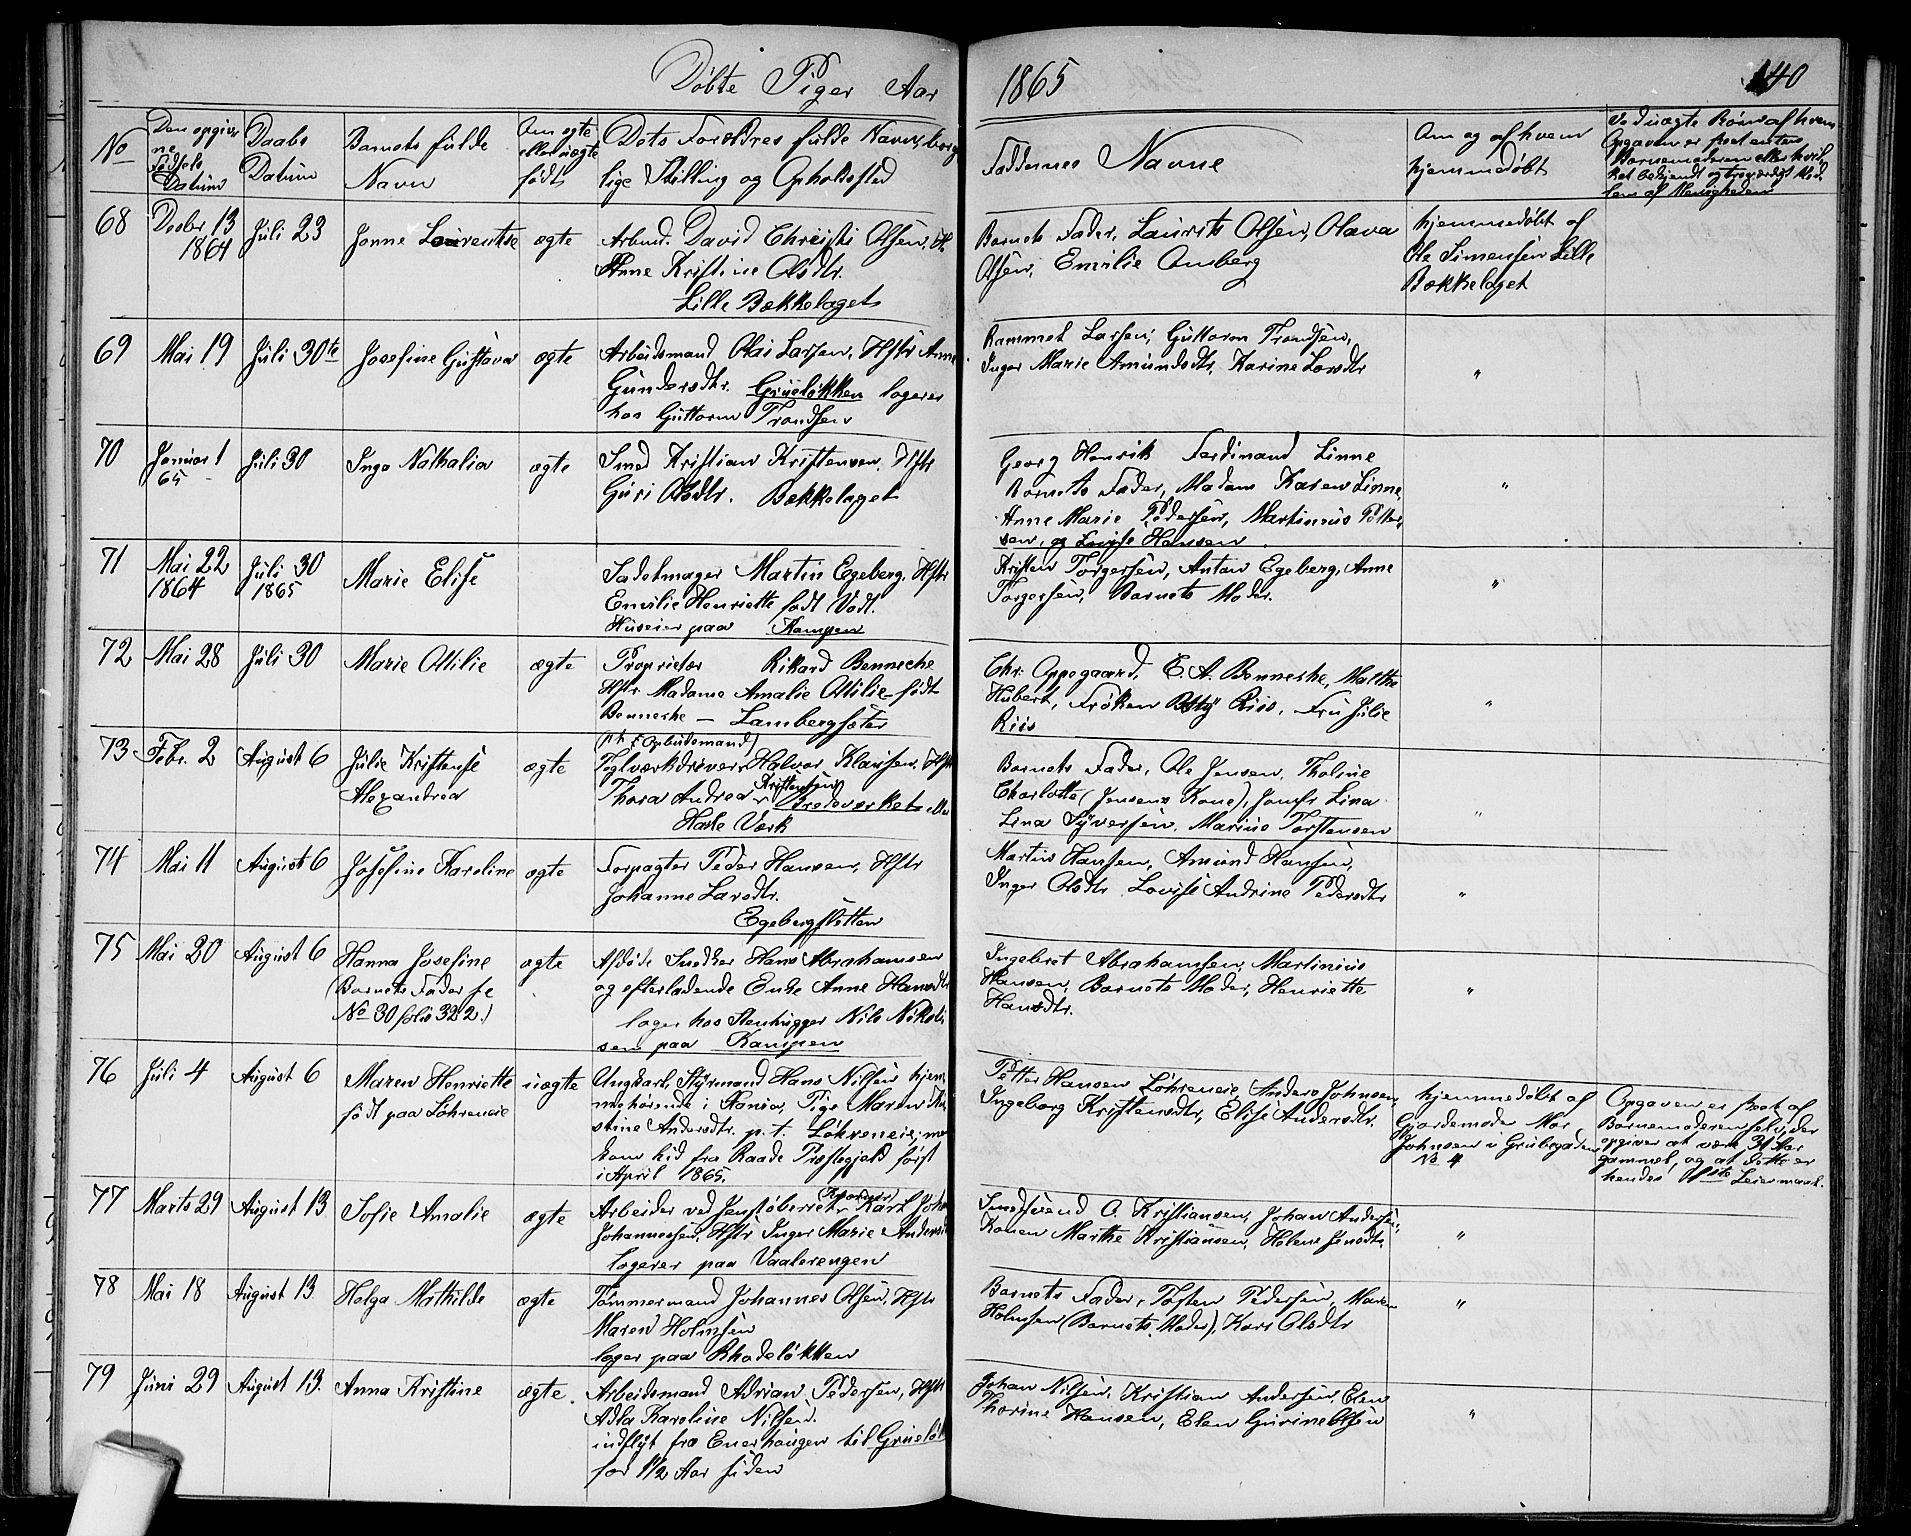 Döbte Piger Aar 1865
140
No
Den opgivne Födsels Datum
Daabs Datum
Barnets fulde Navn
Om ægte eller uægte födt
Dets Forældres fulde Navn, borgerlige Stilling og Opholdsted
Faddernes Navne
Om og af hvem hjemmedöbt
68
Decbr 13
1864
Juli 23
Jonne Laurentse
ægte
Arbmd. David Christi Olsen, H.
Anne Kristine Olsdtr.
Lille Bækkelaget
Barnets Fader, Laurits Olsen, Olava
Olsen, Emilie Amberg
hjemmedöbt af
Ole Simensen Lille
Bækkelaget
69
Mai 19
Juli 30te
Josefine Gustava
ægte
Arbeidsmand Olai Larsen, Hstr Anne
Gundersdtr. Grüelökken logerer
hos Guttorm Trondsen
Rammet Larsen, Guttorm Trondsen,
Inger Marie Amundsdtr, Karine Larsdtr
"
70
Januar 1
65
Juli 30
Inga Nathalia
ægte
Smed Kristian Kristensen, Hstr
Guri Olsdtr. Bækkelaget
Georg Henrik Ferdinand Linne
Barnets Fader, Madam Karen Linne,
Anne Marie Pedersen, Martinius Petter
sen, og Lovise Hansen
"
71
Mai 22
1864
Juli 30
1865
Marie Elise
Sadelmager Martin Egeberg, Hstr
Emilie Henriette födt Vodt.
Huseier paa Kampen
Kristen Torgersen, Anton Egeberg, Anne
Torgersen, Barnets Moder.
"
72
Mai 28
Juli 30
Marie Otilie
ægte
Proprietær Rikard Benneche
Hstr Madame Amalie Otilie födt
Benneche - Lambergsæter
Chr. Oppegaard, E. A. Benneche, Malthe
Hubert, Fröken Betsy Riis, Fru Julie
Riis
"
73
Febr. 2
August 6
Julie Kristense
Alexandrea
ægte
Teglværksdriver Halvor Klausen, Hstr
Thora Andrea Kristensen
Hasle Værk
Barnets Fader, Ole Jensen, Tholine
Charlotte (Jensens Kone), Jomfr Lina
Lina Syversen, Marius Torstensen
"
74
Mai 11
August 6
Josefine Karoline
ægte
Forpagter Peder Hansen, Hstr
Johanne Larsdtr.
Egebergsletten
Martin Hansen, Amund Hansen,
Inger Olsdtr Lovise Andrine Pedersdtr
"
75
Mai 20
August 6
Hanna Josefine
(Barnets Fader se
No 30 folio 322.)
ægte
Afdöde Snedker Hans Abrahamsen
og efterladende Enke Anne Hansdtr
loger hos Stenhugger Nils Nikolai
sen paa Kampen
Ingebret Abrahamsen, Martinius
Hansen, Barnets Moder, Henriette
Hansdtr.
"
76
Juli 4
August 6
Maren Henriette
födt paa Lökreneie
uægte
Ungkarl Styrmand Hans Nilsen hjem
mehörende i Kania, Pige Maren Kri
stine Andersdtr. p.t. Lökreneie, men
kom hid fra Raade Præstegjeld först
i April 1865.
Petter Hansen Lökreneie, Anders Johnsen,
Ingeborg Kristensdtr, Elise Andersdtr.
hjemmedöbt af
Gjordemoder Mor
Johnsen i Grubegaden
No 4
Opgaven er skeet af
Barnemoderen selv, der
opgiver at være 31 Aar
gammel, og at dette er
hendes 1ste Leiermaal.
77
Marts 29
August 13
Sofie Amalie
ægte
Arbeider ved Jernstöberiet Karl Johan
Johannessen, Hstr Inger Marie Andersd
logerer paa Vaalerengen
Smedsvend O. Kristiansen, Johan Andersen,
Konen Marthe Kristiansen, Helene Jensdtr
"
78
Mai 18
August 13
Helga Mathilde
ægte
Tömmermand Johannes Olsen, Hstr
Maren Holmsen
loger paa Rhodelökken
Barnets Fader, Tosten Pedersen, Maren
Holmsen (Barnets Moder), Kari Olsdtr
"
79
Juni 29
August 13.
Anna Kristine
ægte.
Arbeidsmand Adrian Pedersen, Hstr
Adla Karoline Nilsen.
indflyt fra Enerhaugen til Grüelök
for 1 1/2 Aar siden
Johan Nilsen, Kristian Andersen, Elen
Thorine Hansen, Elen Gurine Olsen
"